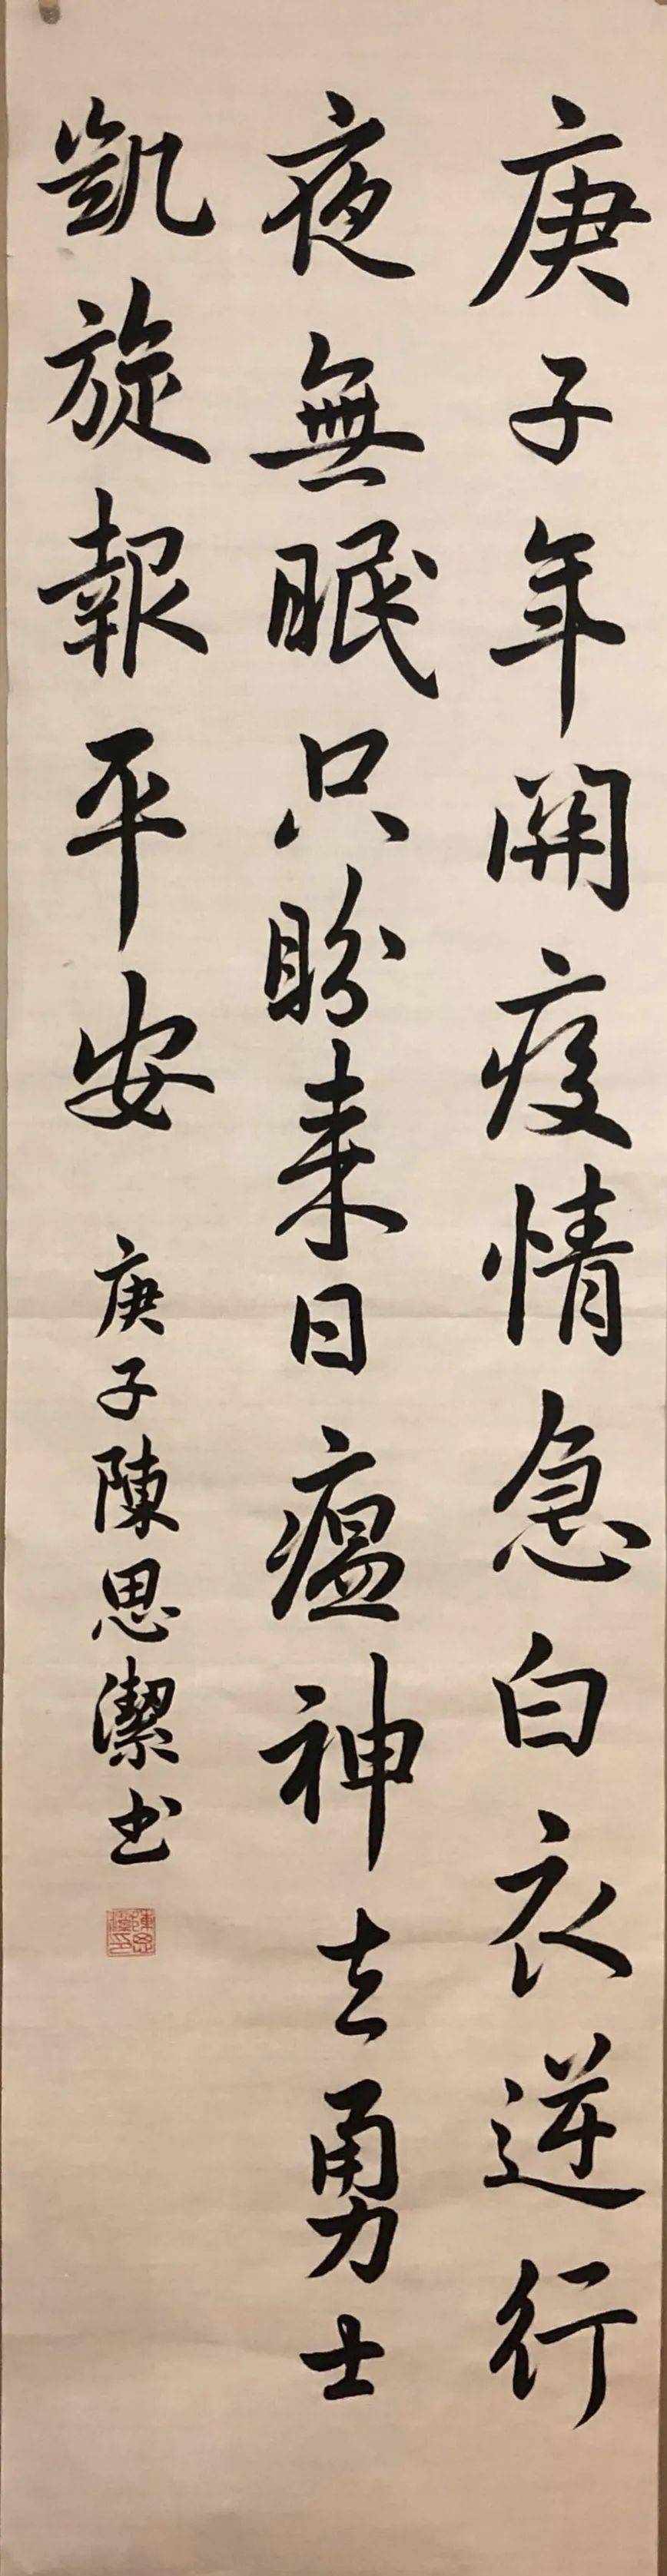 庚子年開疫情急白衣逆行
夜無眠只盼来日瘟神去勇士
凱旋報平安
庚子陳思潔书